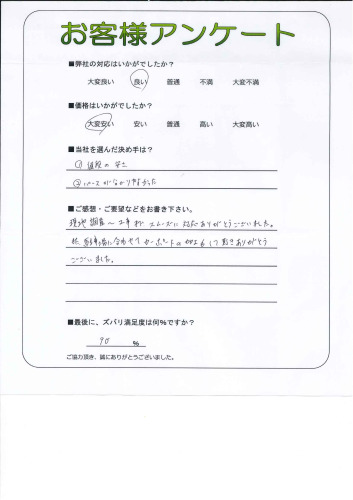 お客様アンケート
■弊社の対応はいかがでしたか？
大変良い 良い 普通 不満 大変不満
■価格はいかがでしたか？
大変安い 安い 普通 高い 大変高い
■当社を選んだ決め手は？
① 値段の安さ
② ペースがわかりやすかった
■ご感想・ご要望などをお書き下さい。
現地調査〜工事までスムーズに対応ありがとうございました。
駐車場に合わせてカーポートの加工もして頂きありがとう
ございました。
■最後に、ズバリ満足度は何%ですか？
90 %
ご協力頂き、誠にありがとうございました。